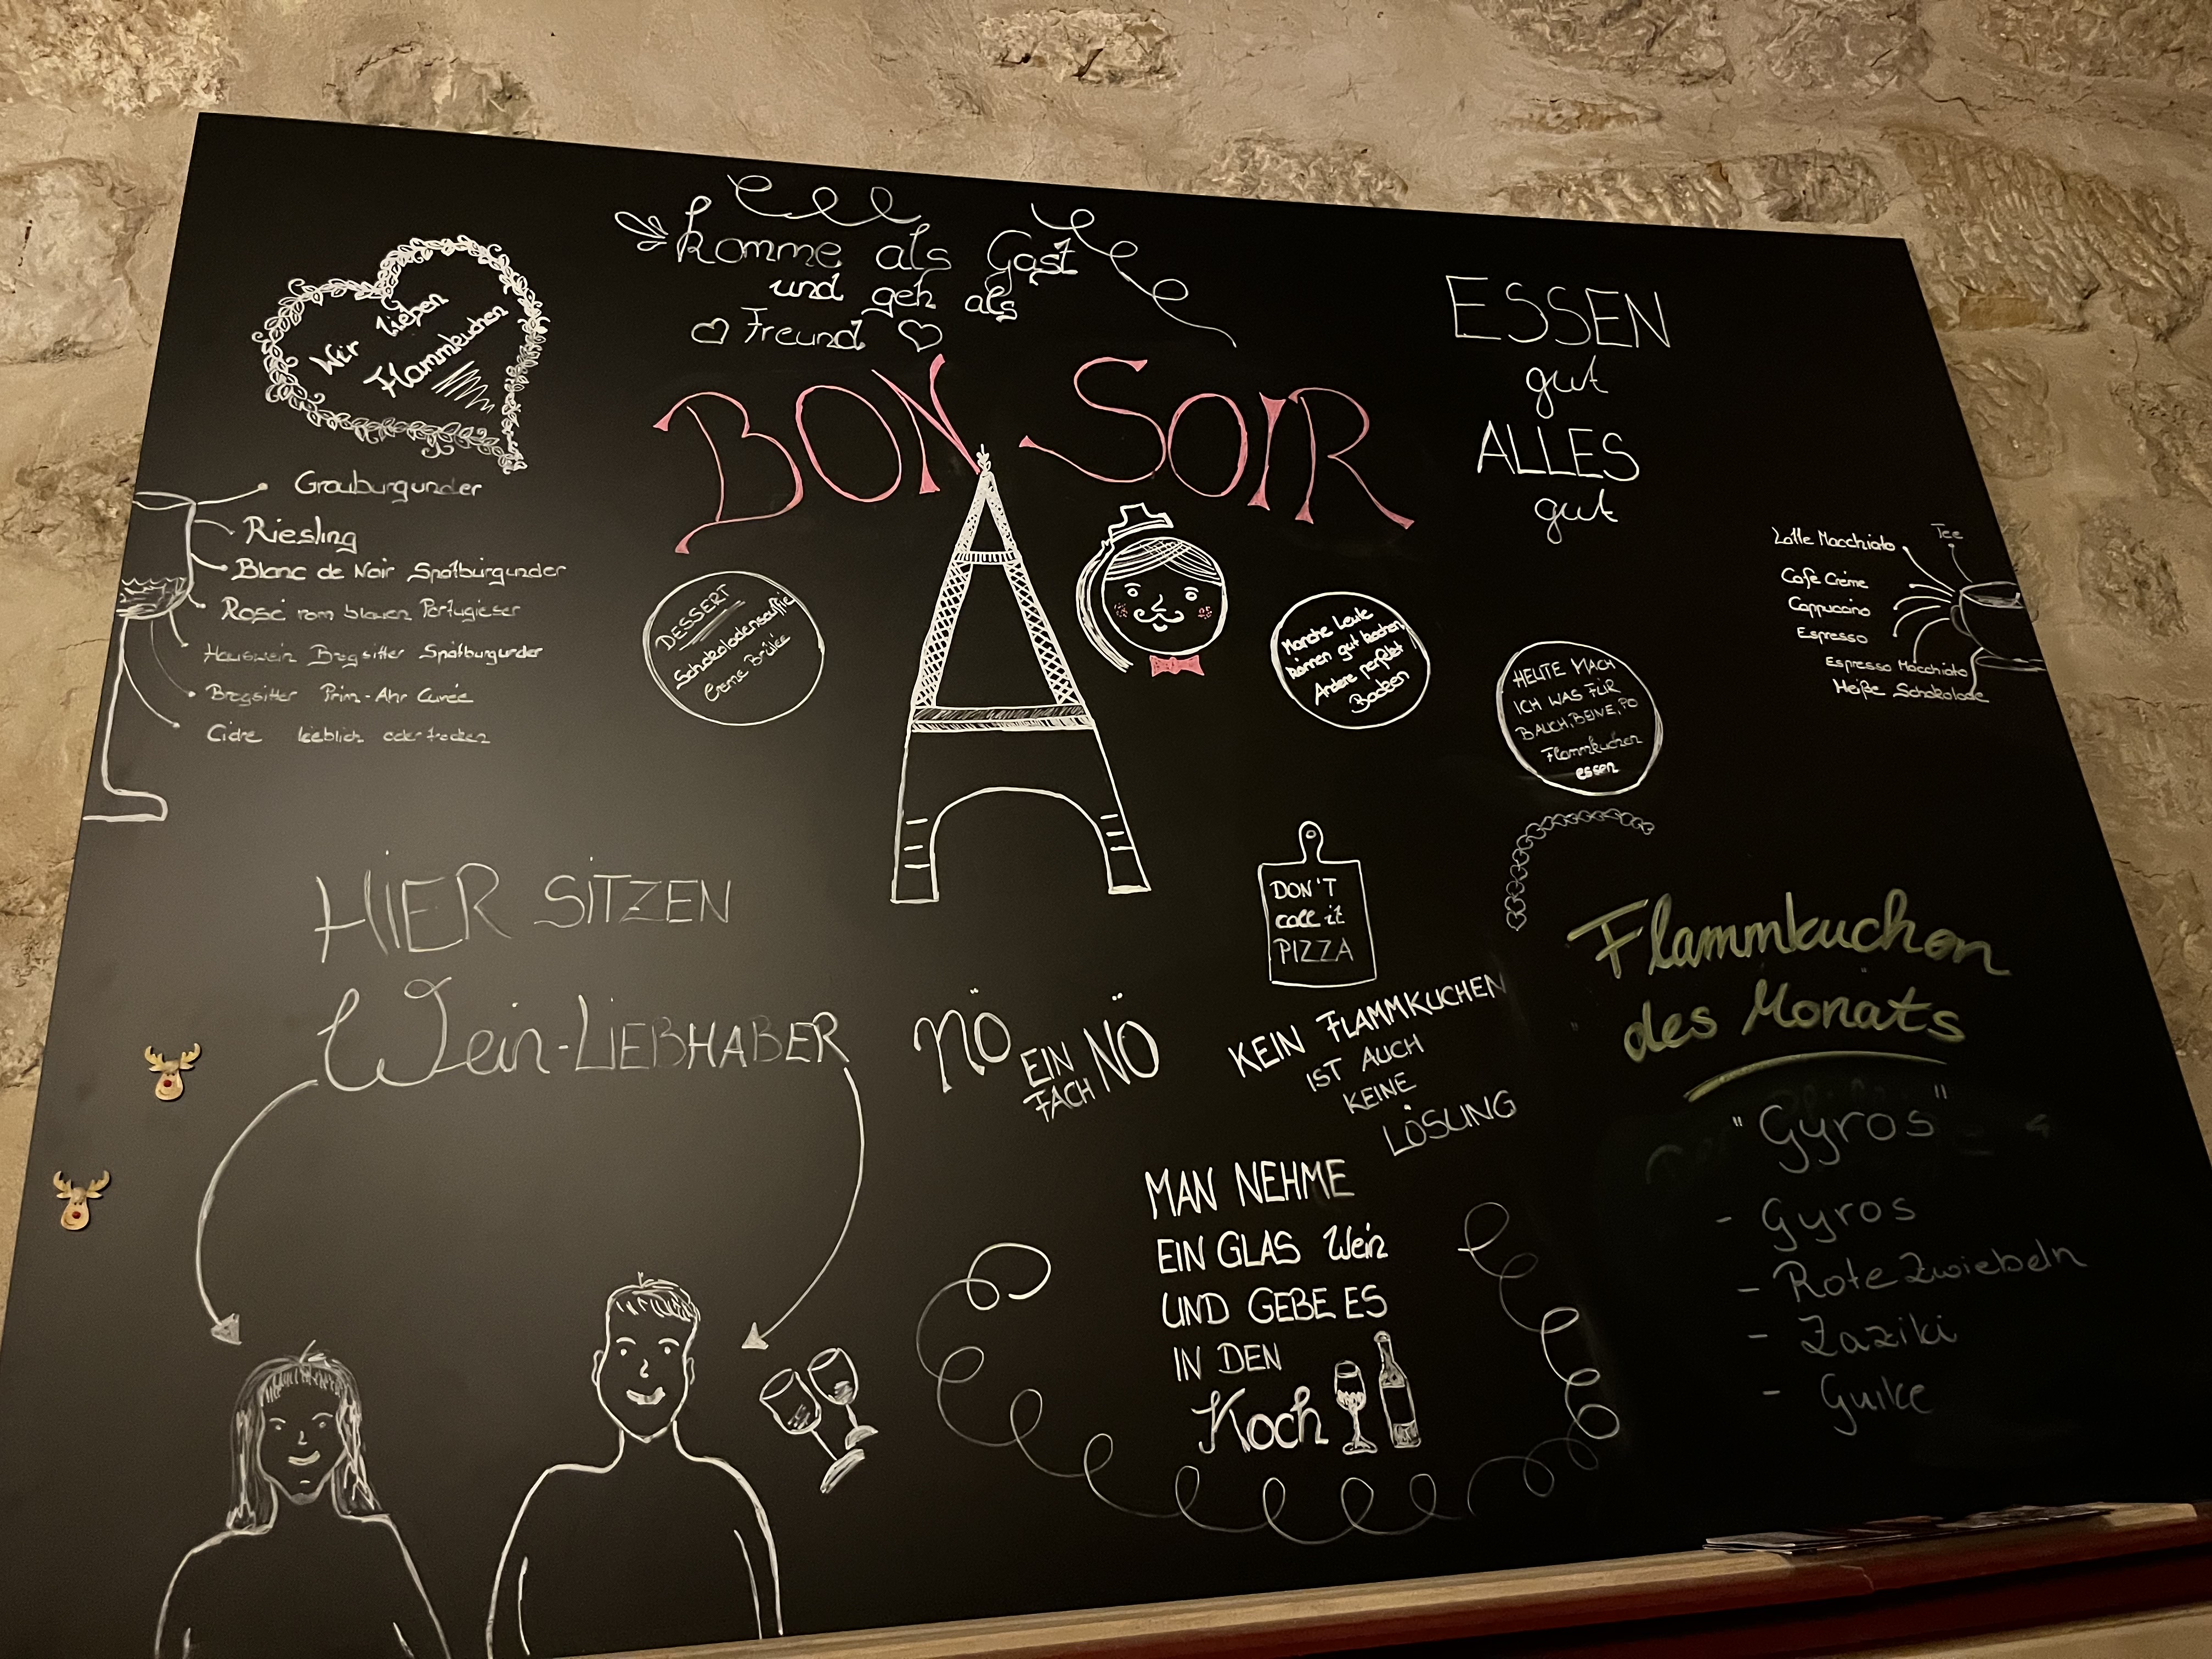 Komme als Gast
und geh als
Freund
Wir lieben
Flammkuchen
BON SOIR
ESSEN
gut
ALLES
gut
Grauburgunder
Riesling
Blanc de Noir Spätburgunder
Rosé vom blauen Portugieser
Hauswein Brogsitter Spätburgunder
Brogsitter Prim-Ahr Cuvée
Cidre lieblich oder trocken
DESSERT
Schokoladensoufflé
Creme Brûlée
Manche Leute
können gut kochen,
Andere perfekt
Backen
HEUTE MACH
ICH WAS FÜR
BAUCH, BEINE, PO
Flammkuchen
essen
Tee
Latte Macchiato
Café Crème
Cappuccino
Espresso
Espresso Macchiato
Heiße Schokolade
HIER SITZEN
Wein-LIEBHABER
DON'T
call it
PIZZA
NÖ
EIN
FACH NÖ
KEIN FLAMMKUCHEN
IST AUCH
KEINE
LÖSUNG
MAN NEHME
EIN GLAS Wein
UND GEBE ES
IN DEN
Koch
Flammkuchen
des Monats
"Gyros"
- Gyros
- Rote Zwiebeln
- Zaziki
- Gurke